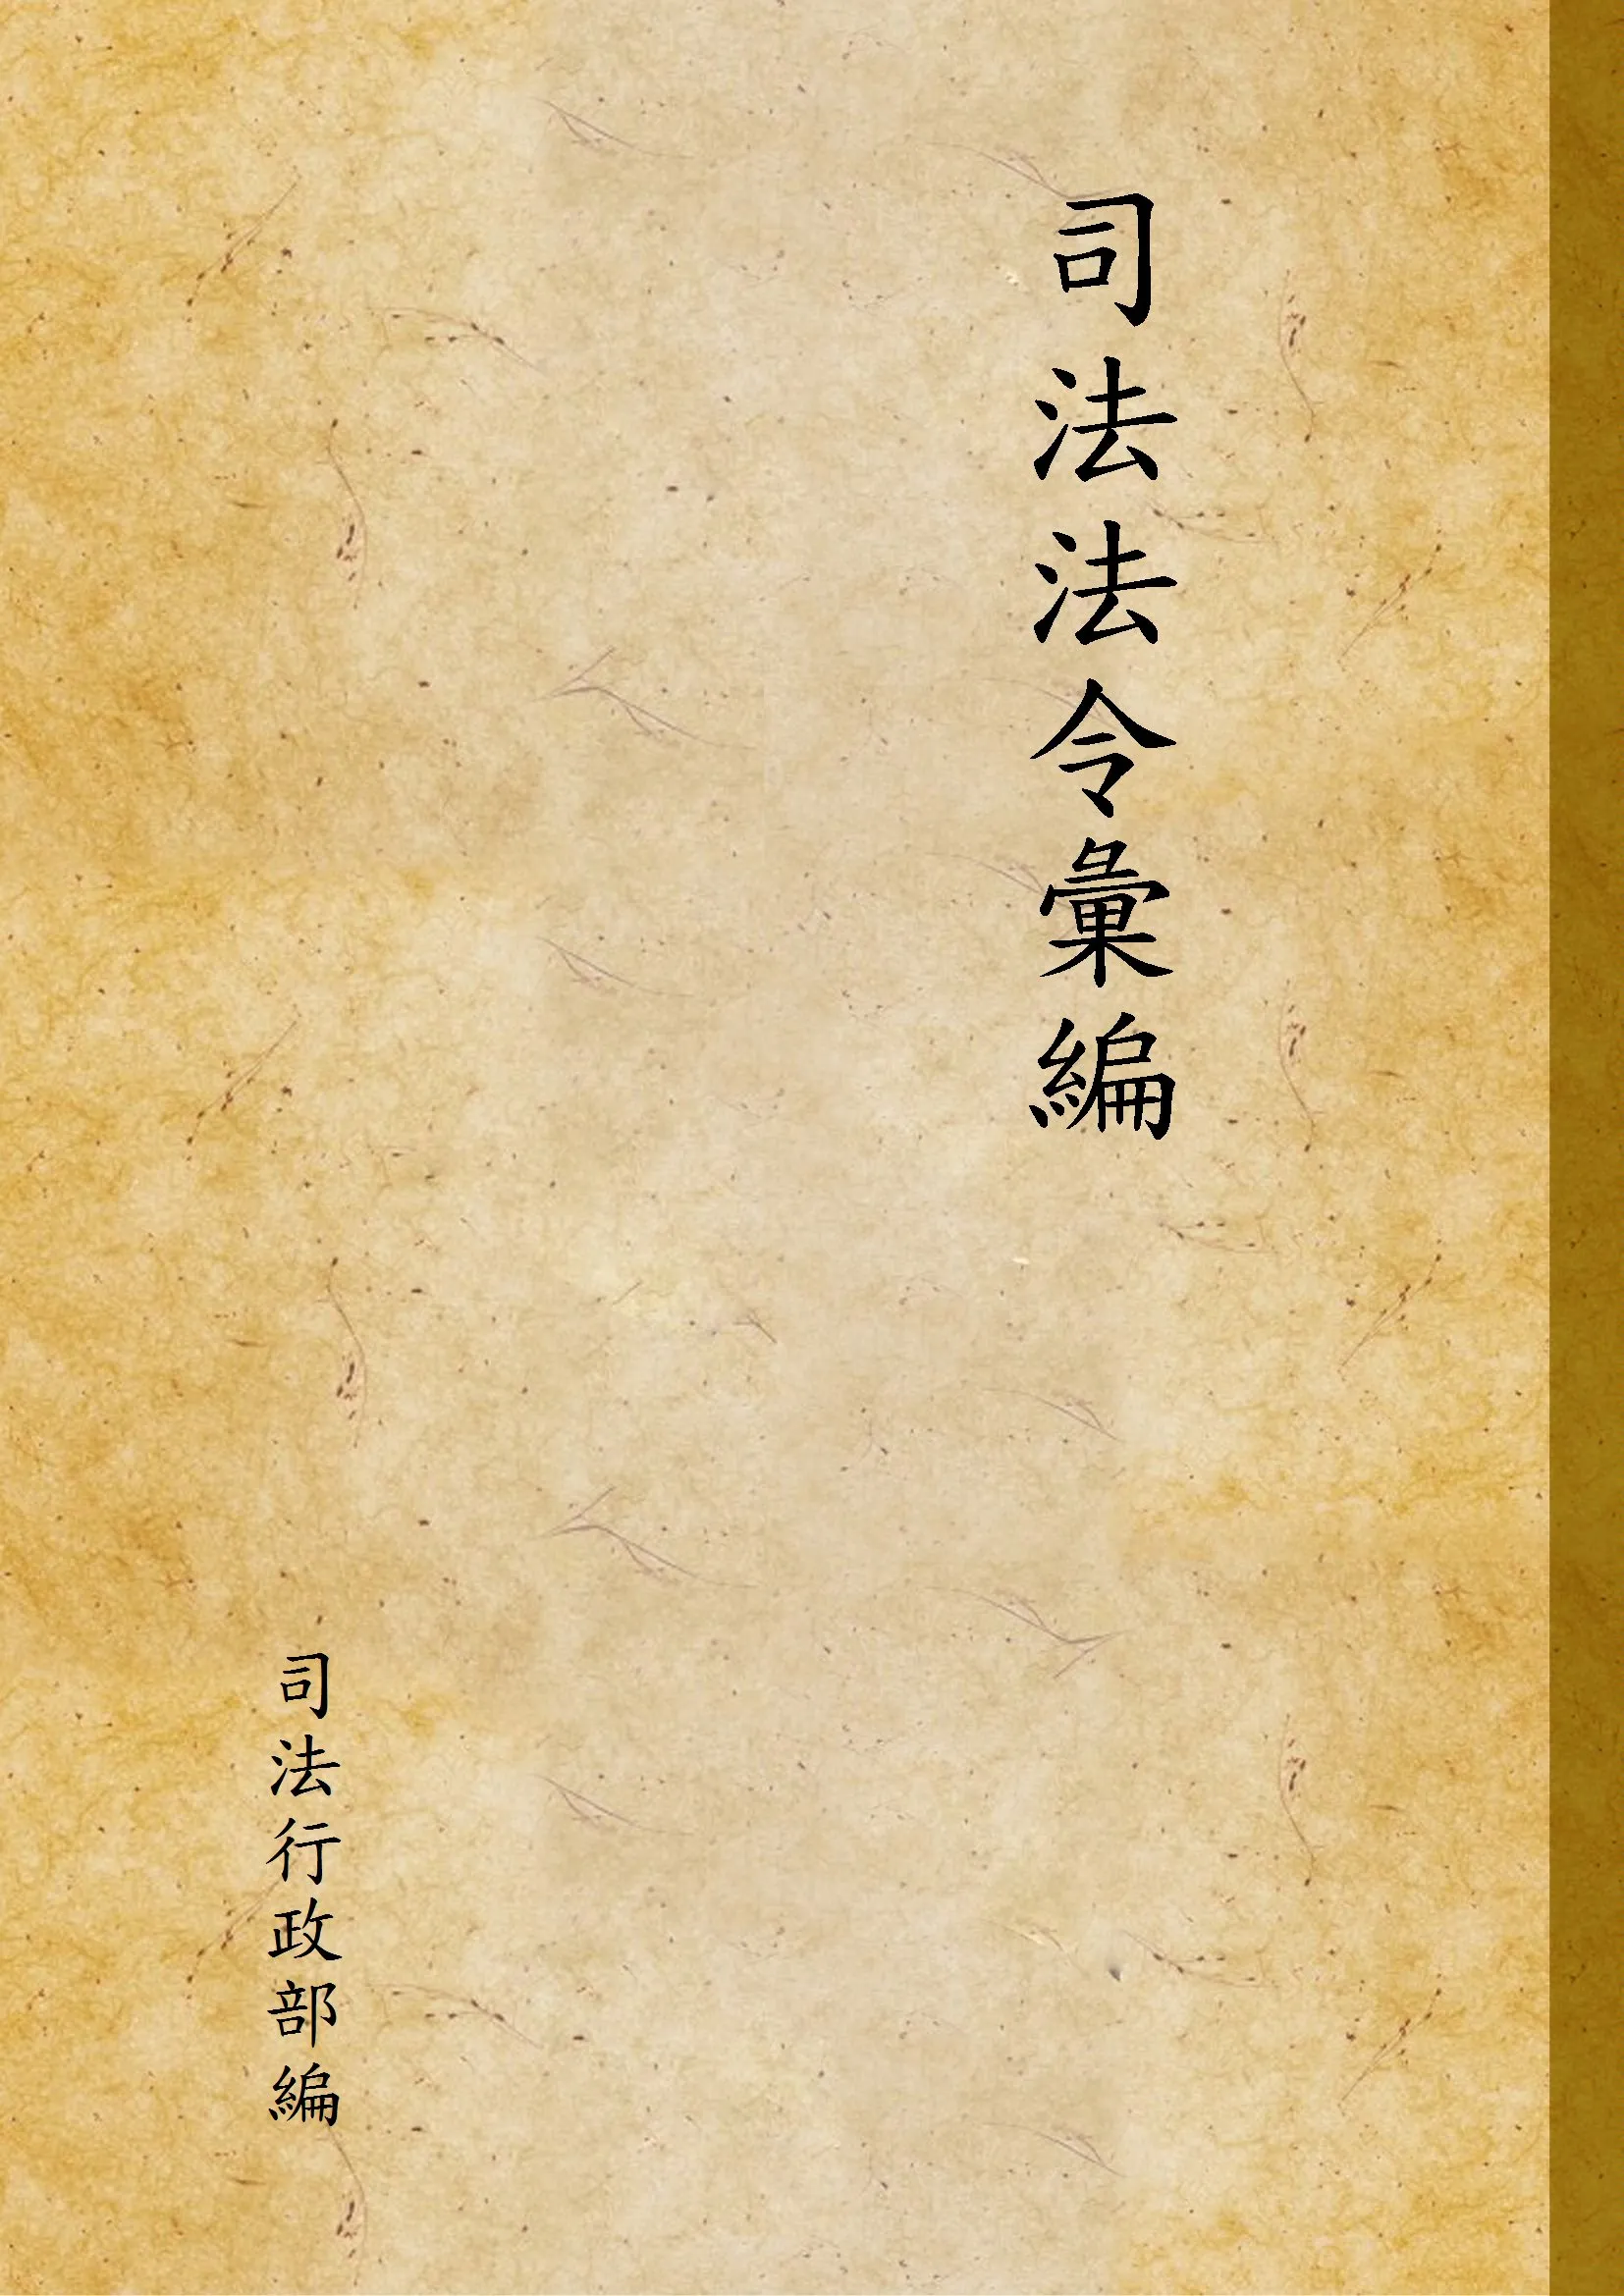 司法法令彙編
司法行政部編